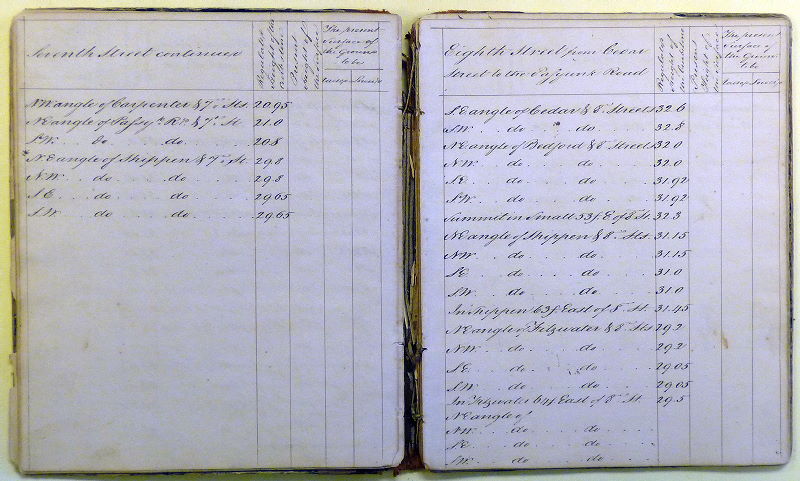 Seventh Street continued
Regulated height of the
Present height of the surface
The present surface of the Ground to be
raised
NW angle of Carpenter & 7th Sts. 20.95
NE angle of Passyk Rd. & 7th St 21.0
SW. do do 20.8
NE angle of Shippen & 7th St. 29.8
NW. do do 29.8
SE do do 29.65
SW do do 29.65
Eighth Street from Cedar
Street to the Passyunk Road
Regulated height of
Present height of the surface
The present surface of the Ground to be
raised
SE angle of Cedar & 8th Streets 32.6
SW. do do 32.8
NE angle of Bedford & 8th Streets 32.0
NW. do do 32.0
SE do do 31.92
SW do do 31.92
Summit in Small 53f E of 8th St. 32.3
NE angle of Shippen & 8th Sts. 31.15
NW do do 31.15
SE do do 31.0
SW. do do 31.0
In Shippen 63f East of 8th St. 31.45
NE angle of Fitzwater & 8th Sts 29.2
NW. do do 29.2
SE do do 29.05
SW. do do 29.05
In Fitzwater 64f East of 8th St. 29.5
NE angle of
NW. do do
SE do do
SW. do do